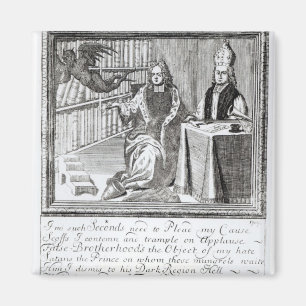 I'm such Seconds need to Plead my Cause
Scoffs I contemn and trample on Applause
False Brotherhoods the Object of my hate
Satans the Prince on whom those mungrels waite
Him I dismis to his Dark Region Hell